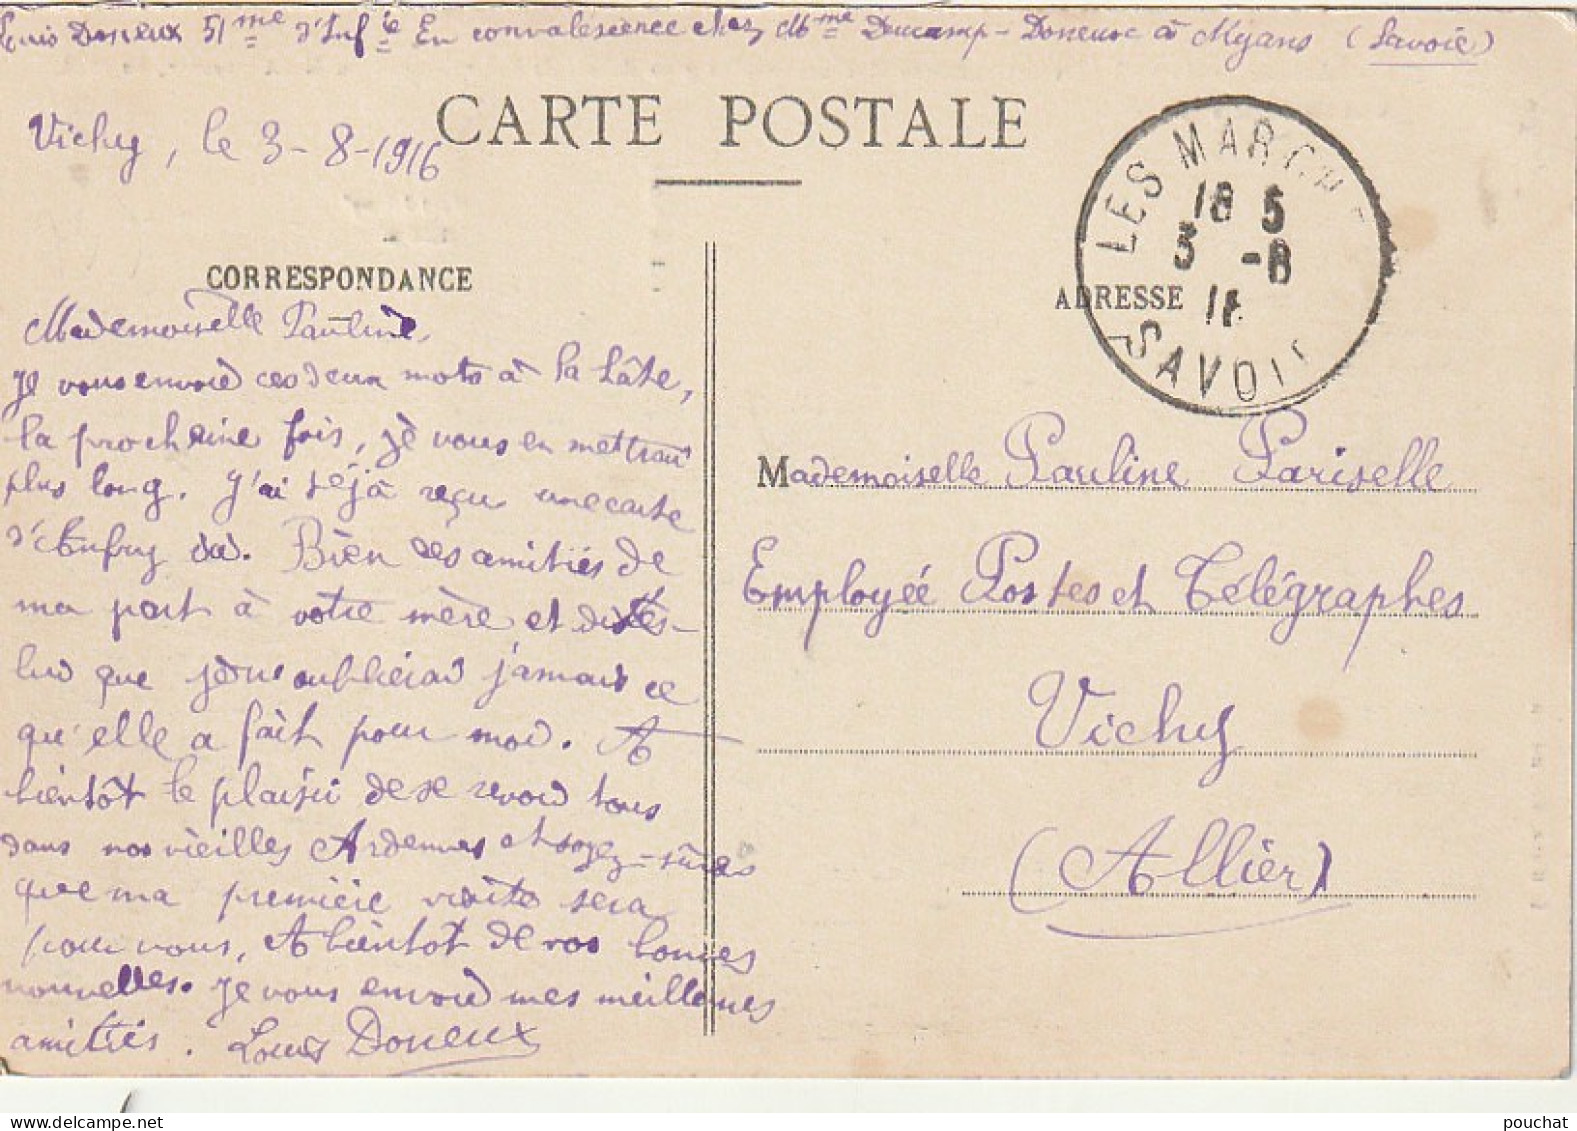 Louis Doneux 51me d'Infie En convalescence chez Mme Ducamp-Doneux à Myans (Savoie)
CARTE POSTALE
Vichy, le 3-8-1916
LES MARCHE
18 5
3 -8
16
SAVOIE
CORRESPONDANCE
ADRESSE
Mademoiselle Pauline,
Je vous envoie ces deux mots à la hâte,
la procheine fois, je vous en mettrai
plus long. J'ai déjà reçu une carte
Bien des amitiés de
ma part à votre mère et dites-
lui que je n'oublierai jamais ce
qu'elle a fait pour moi. A
bientôt le plaisir de se revoir tous
dans nos vieilles Ardennes et soyez-sûres
que ma première visite sera
pour vous, A bientôt de vos bonnes
nouvelles. Je vous envoie mes meilleures
amitiés. Louis Doneux
Mademoiselle Pauline Pariselle
Employée Postes et Télégraphes
Vichy
(Allier)
pouchat